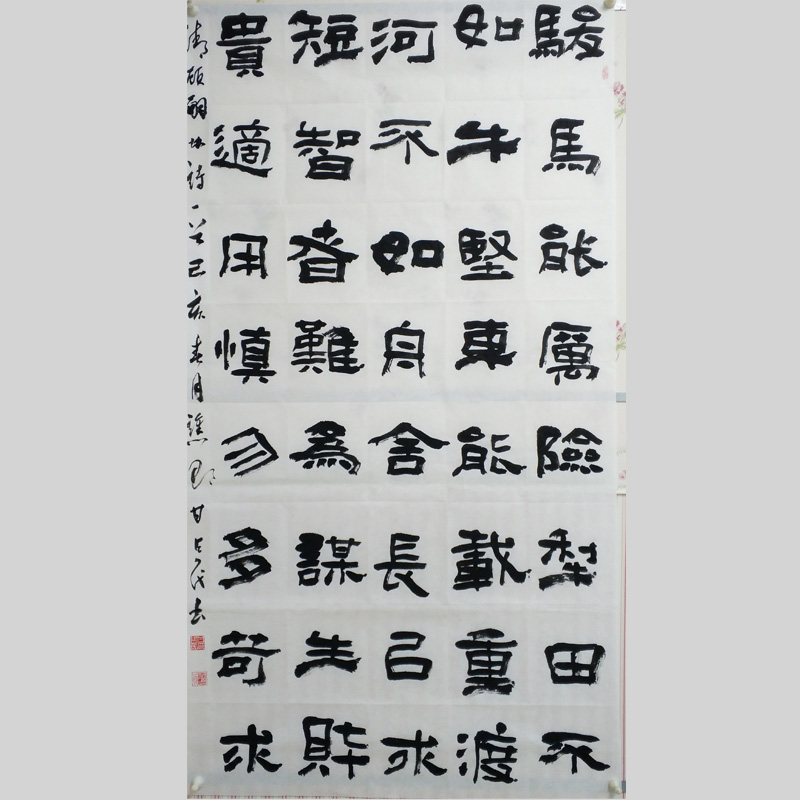 駿馬能厲險犁田不
如牛堅車能載重渡
河不如舟舍長㠯求
短智者難為謀生財
貴適用慎勿多苛求
清顧嗣協詩一首己亥春月譙郡甘占民书